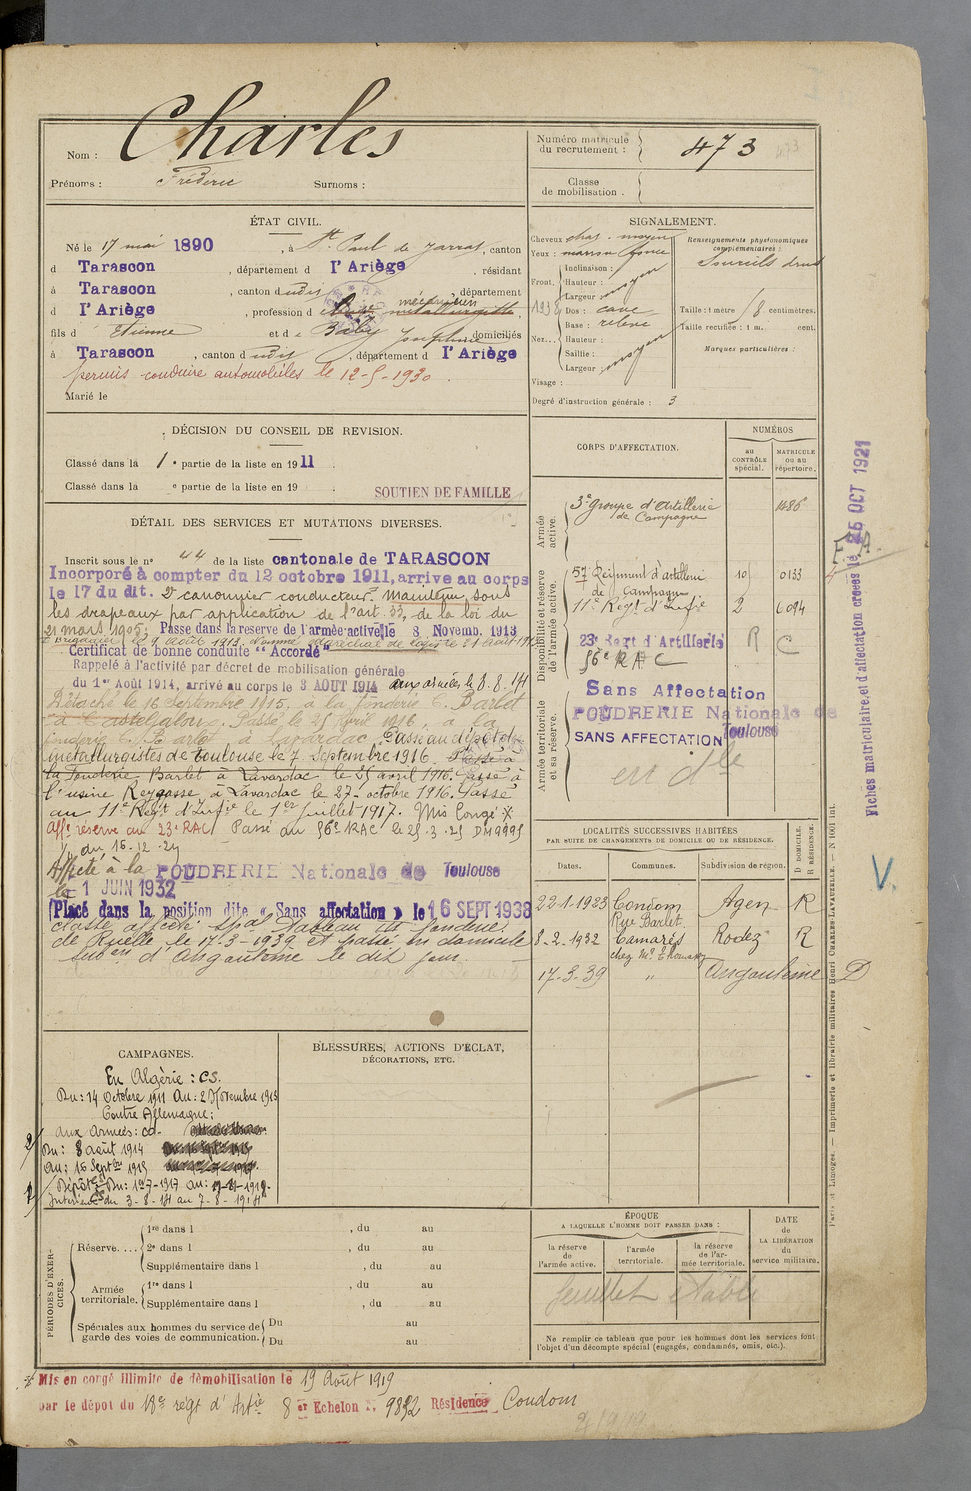 Nom : Charles
Prénoms : Frédéric Surnoms :
Numéro matricule
du recrutement : 473
Classe
de mobilisation .
ÉTAT CIVIL.
Né le 17 mai 1890 , à St Paul de Jarrat, canton
d Tarascon , département d l'Ariège , résidant
à Tarascon , canton dudit , département
d l'Ariège , profession d mécanicien
fils d Etienne et de Baby Josephine domiciliés
à Tarascon , canton dudit , département d l'Ariège
permis conduire automobiles le 12-5-1930.
Marié le
SIGNALEMENT.
Cheveux chat. moyen
Yeux : marron foncé
Front. Inclinaison :
Hauteur : moyen
Largeur
1938 Dos : cave
Base : relevé
Nez... Hauteur :
Saillie : moyen
Largeur
Visage :
Degré d'instruction générale : 3
Renseignements physionomiques
complémentaires :
Sourcils droits
Taille : 1 mètre 8 centimètres.
Taille rectifiée : 1 m. cent.
Marques particulières :
DÉCISION DU CONSEIL DE REVISION.
Classé dans la 1 e partie de la liste en 1911
Classé dans la e partie de la liste en 19
SOUTIEN DE FAMILLE
DÉTAIL DES SERVICES ET MUTATIONS DIVERSES.
Inscrit sous le n° 44 de la liste cantonale de TARASCON
Incorporé à compter du 12 octobre 1911, arrivé au corps
le 17 du dit. 2e canonnier conducteur. Maintenu sous
les drapeaux par application de l'art. 33, de la loi du
21 mars 1905. Passé dans la réserve de l'armée active le 8 Novemb. 1913
Certificat de bonne conduite "Accordé"
Rappelé à l'activité par décret de mobilisation générale
du 1er Août 1914, arrivé au corps le 3 AOUT 1914 aux armées le 8.8.14
Détaché le 16 Septembre 1915, à la fonderie C. Barlet
à Casteljaloux. Passé le 25 avril 1916 à la
fonderie C. Barlet à Lavardac. Passé au dépôt des
métallurgistes de Toulouse le 7 Septembre 1916. Passé à
la Fonderie Barlet à Lavardac le 25 avril 1916. Passé à
l'usine Reygasse à Lavardac le 27 octobre 1916. Passé
au 11e Régt d'Infie le 1er juillet 1917. Mis Congé X
Affé réserve au 23e RAC Passé au 56e RAC le 25.3.25 DM 9995
1/ du 16-12-24
Affecté à la POUDRERIE Nationale de Toulouse
le 1 JUIN 1932
Placé dans la position dite « Sans affectation » le 16 SEPT 1938
Classé affecté spal Tableau III fonderie
de Ruelle le 17-3-1939 et passé en domicile
subon d'Angoulême le dit jour
CORPS D'AFFECTATION.
NUMÉROS
au
CONTRÔLE
spécial.
MATRICULE
OU AU
répertoire.
Armée
active.
3e groupe d'Artillerie
de Campagne 1486
Disponibilité et réserve
de l'armée active.
57 Régiment d'artillerie
de Campagne 10 0133
11e Régt d'Infie 2 6094
23e Regt d'Artillerie R C
56e RAC
Armée territoriale
et sa réserve.
Sans Affectation
POUDRERIE Nationale de
Toulouse
SANS AFFECTATION
en dle
LOCALITÉS SUCCESSIVES HABITÉES
PAR SUITE DE CHANGEMENTS DE DOMICILE OU DE RÉSIDENCE.
Dates. Communes. Subdivision de région. D DOMICILE. R RÉSIDENCE.
22-1-1923 Condom Agen R
Rue Barlet
8-2-1932 Camarès Rodez R
17-3-39 " Angoulême D
CAMPAGNES.
En Algérie : CS.
Du : 14 Octobre 1911 Au : 2 Novembre 1913
Contre Allemagne :
aux Armées : CD.
Du : 8 août 1914
Au : 15 Septbre 1915
Dépôt Du : 1er-7-1917 au :
Intérieur CS du 3-8-14 au 7-8-1914
BLESSURES, ACTIONS D'ÉCLAT,
DÉCORATIONS, ETC.
PÉRIODES D'EXERCICES.
Réserve.... 1re dans l , du au
2e dans l , du au
Supplémentaire dans l , du au
Armée
territoriale. 1re dans l , du au
Supplémentaire dans l , du au
Spéciales aux hommes du service de
garde des voies de communication. Du au
Du au
ÉPOQUE
A LAQUELLE L'HOMME DOIT PASSER DANS :
la réserve
de
l'armée active.
l'armée
territoriale.
la réserve
de l'ar-
mée territoriale.
DATE
de
LA LIBÉRATION
du
service militaire.
feuillet établi
Ne remplir ce tableau que pour les hommes dont les services font
l'objet d'un décompte spécial (engagés, condamnés, omis, etc.).
Mis en congé illimité de démobilisation le 19 Août 1919
par le dépôt du 18e régt d'Artie 8 er Echelon n° 9852 Résidence Condom
Fiches matriculaire et d'affectation créées le 25 OCT 1921
F.A.
V.
Paris et Limoges. — Imprimerie et librairie militaires Henri CHARLES-LAVAUZELLE. — N° 1001 int.